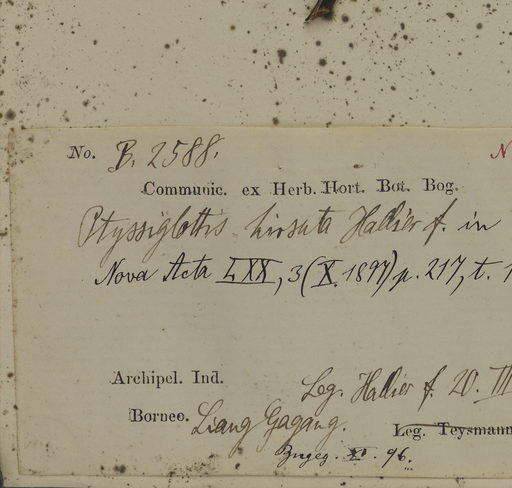 No. B. 2588. N
Communic. ex Herb. Hort. Bot. Bog.
Ptyssiglottis hirsuta Hallier f. in
Nova Acta LXX, 3 (X. 1897) p. 217, t. 1
Archipel. Ind.
Leg. Hallier f. 20. III
Borneo. Liang Gagang.
Leg. Teysmann
XI. 96.